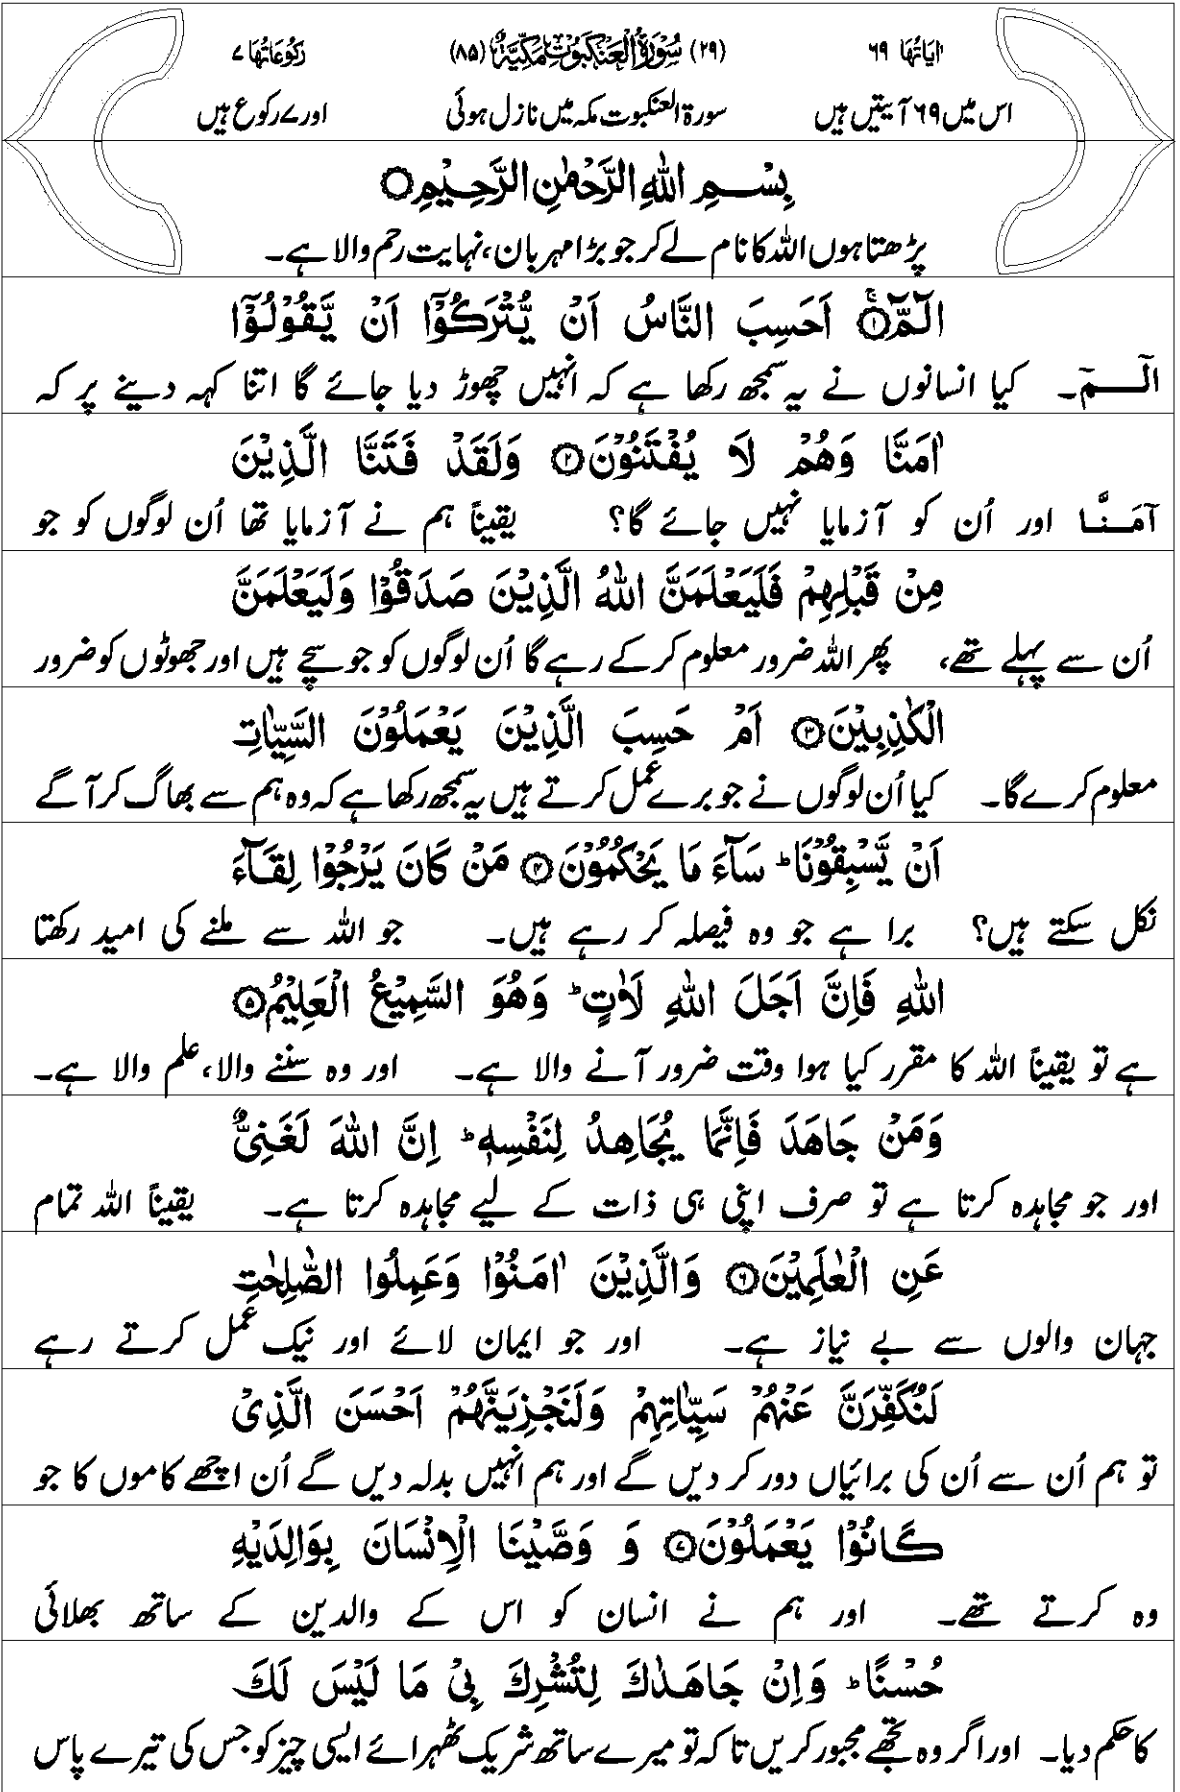 اٰيَاتُهَا ٦٩ (٢٩) سُوْرَةُ الْعَنْكَبُوْتِ مَكِّيَّةٌ (٨٥) رُكُوْعَاتُهَا ٧
اس میں ۶۹ آیتیں ہیں سورۃ العنکبوت مکہ میں نازل ہوئی اور ۷ رکوع ہیں
بِسْــمِ اللّٰهِ الرَّحْمٰنِ الرَّحِـيْمِ۝
پڑھتا ہوں اللہ کا نام لے کر جو بڑا مہربان، نہایت رحم والا ہے۔
الٓـمّٓ ۝١ۚ اَحَسِبَ النَّاسُ اَنْ يُّتْرَكُوْٓا اَنْ يَّقُوْلُوْٓا
الٓــمٓ۔ کیا انسانوں نے یہ سمجھ رکھا ہے کہ انہیں چھوڑ دیا جائے گا اتنا کہہ دینے پر کہ
اٰمَنَّا وَهُمْ لَا يُفْتَنُوْنَ۝٢ وَلَقَدْ فَتَنَّا الَّذِيْنَ
آمَـنَّـا اور اُن کو آزمایا نہیں جائے گا؟ یقیناً ہم نے آزمایا تھا اُن لوگوں کو جو
مِنْ قَبْلِهِمْ فَلَيَعْلَمَنَّ اللّٰهُ الَّذِيْنَ صَدَقُوْا وَلَيَعْلَمَنَّ
اُن سے پہلے تھے، پھر اللہ ضرور معلوم کرکے رہے گا اُن لوگوں کو جو سچے ہیں اور جھوٹوں کو ضرور
الْكٰذِبِيْنَ۝٣ اَمْ حَسِبَ الَّذِيْنَ يَعْمَلُوْنَ السَّيِّاٰتِ
معلوم کرے گا۔ کیا اُن لوگوں نے جو برے عمل کرتے ہیں یہ سمجھ رکھا ہے کہ وہ ہم سے بھاگ کر آگے
اَنْ يَّسْبِقُوْنَا ؕ سَآءَ مَا يَحْكُمُوْنَ۝٤ مَنْ كَانَ يَرْجُوْا لِقَآءَ
نکل سکتے ہیں؟ برا ہے جو وہ فیصلہ کر رہے ہیں۔ جو اللہ سے ملنے کی امید رکھتا
اللّٰهِ فَاِنَّ اَجَلَ اللّٰهِ لَاٰتٍ ؕ وَهُوَ السَّمِيْعُ الْعَلِيْمُ۝٥
ہے تو یقیناً اللہ کا مقرر کیا ہوا وقت ضرور آنے والا ہے۔ اور وہ سننے والا، علم والا ہے۔
وَمَنْ جَاهَدَ فَاِنَّمَا يُجَاهِدُ لِنَفْسِهٖ ؕ اِنَّ اللّٰهَ لَغَنِيٌّ
اور جو مجاہدہ کرتا ہے تو صرف اپنی ہی ذات کے لیے مجاہدہ کرتا ہے۔ یقیناً اللہ تمام
عَنِ الْعٰلَمِيْنَ۝٦ وَالَّذِيْنَ اٰمَنُوْا وَعَمِلُوا الصّٰلِحٰتِ
جہان والوں سے بے نیاز ہے۔ اور جو ایمان لائے اور نیک عمل کرتے رہے
لَنُكَفِّرَنَّ عَنْهُمْ سَيِّاٰتِهِمْ وَلَنَجْزِيَنَّهُمْ اَحْسَنَ الَّذِيْ
تو ہم اُن سے اُن کی برائیاں دور کر دیں گے اور ہم انہیں بدلہ دیں گے اُن اچھے کاموں کا جو
كَانُوْا يَعْمَلُوْنَ۝٧ وَ وَصَّيْنَا الْاِنْسَانَ بِوَالِدَيْهِ
وہ کرتے تھے۔ اور ہم نے انسان کو اس کے والدین کے ساتھ بھلائی
حُسْنًا ؕ وَاِنْ جَاهَدٰكَ لِتُشْرِكَ بِيْ مَا لَيْسَ لَكَ
کا حکم دیا۔ اور اگر وہ تجھے مجبور کریں تاکہ تو میرے ساتھ شریک ٹھہرائے ایسی چیز کو جس کی تیرے پاس